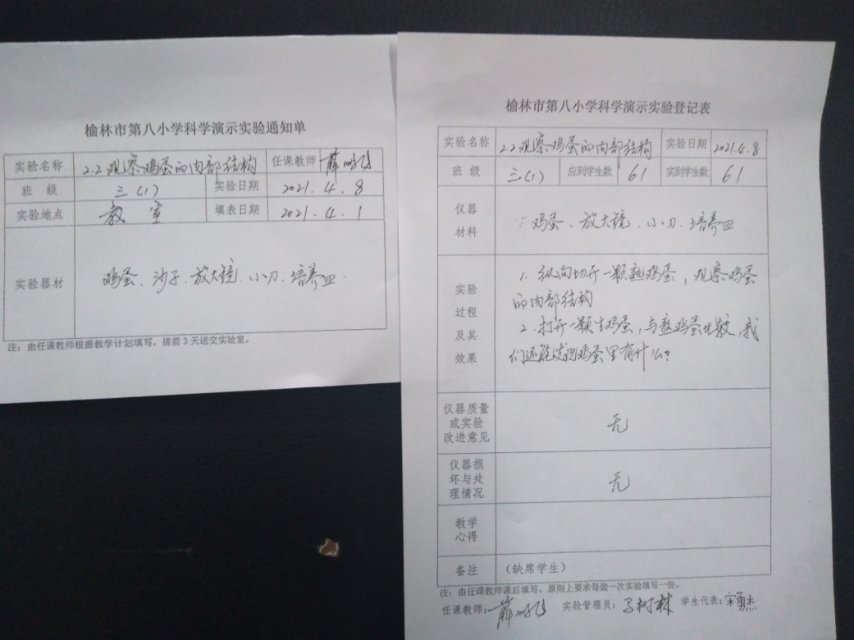 榆林市第八小学科学演示实验通知单
实验名称 2.2观察鸡蛋的内部结构 任课教师 薛
班 级 三(1) 实验日期 2021.4.8
实验地点 教室 填表日期 2021.4.1
实验器材 鸡蛋、沙子、放大镜、小刀、培养皿.
注：由任课教师根据教学计划填写，提前3天送交实验室。
榆林市第八小学科学演示实验登记表
实验名称 2.2观察鸡蛋的内部结构 实验日期 2021.4.8
班 级 三(1) 应到学生数 61 实到学生数 61
仪器
材料
鸡蛋、放大镜、小刀、培养皿
实验
过程
及其
效果
1. 纵向切开一颗熟鸡蛋，观察鸡蛋
的内部结构
2. 打开一颗生鸡蛋，与熟鸡蛋比较，我
们还能发现鸡蛋里有什么？
仪器质量
或实验
改进意见
无
仪器损
坏与处
理情况
无
教学
心得
备注 （缺席学生）
注：由任课教师课后填写，原则上要求每做一次实验填写一份。
任课教师：薛 实验管理员：马柯林 学生代表：宋勇杰